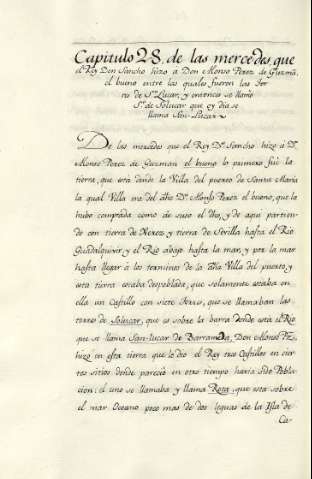 Capitulo 28. de las mercedes, que
el Rey Don Sancho hizo a Don Alonso Perez de Guzmã,
el bueno entre las quales fueron las Tor
res de Sn. Lucar, y entonces se llamó
Sn. de Solucar que oy dia se
llama San-Lucar
De las mercedes que el Rey Dn. Sancho hizo a D.
Alonso Perez de Guzman el bueno lo primero fue la
tierra, que està desde la Villa del puerto de Santa Maria
la qual Villa era del dho Dn. Alonso Perez el bueno, que la
hubo comprado como de suso el dho, y de aqui partien-
do con tierra de Xerez, y tierra de Sevilla hasta el Rio
Guadalquivir, y el Rio abajo hasta la mar, y por la mar
hasta llegar à los terminos de la dha Villa del puerto, y
esta tierra estaba despoblada, que solamente estaba en
ella un Castillo con siete Torres, que se llamaban las
torres de Solucar, que es sobre la barra donde està el Rio
que se llama San-lucar de Barrameda, Don Alonso Pz.
hizo en esta tierra que le diò el Rey tres Castillos en cier
tos sitios donde parecia en otro tiempo havia sido Pobla
cion: el uno se llamaba y llama Rota, que està sobre
el mar Oceano poco mas de dos leguas de la Isla de
Ca-